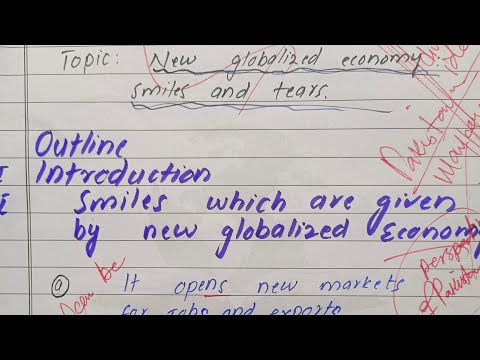 Topic: New globalized economy:
smiles and tears.
Outline
I Introduction
I Smiles which are given
by new globalized Economy
(a) It opens new markets
for Jobs and exports
can be
Pakistan
perspective
of Pakistan